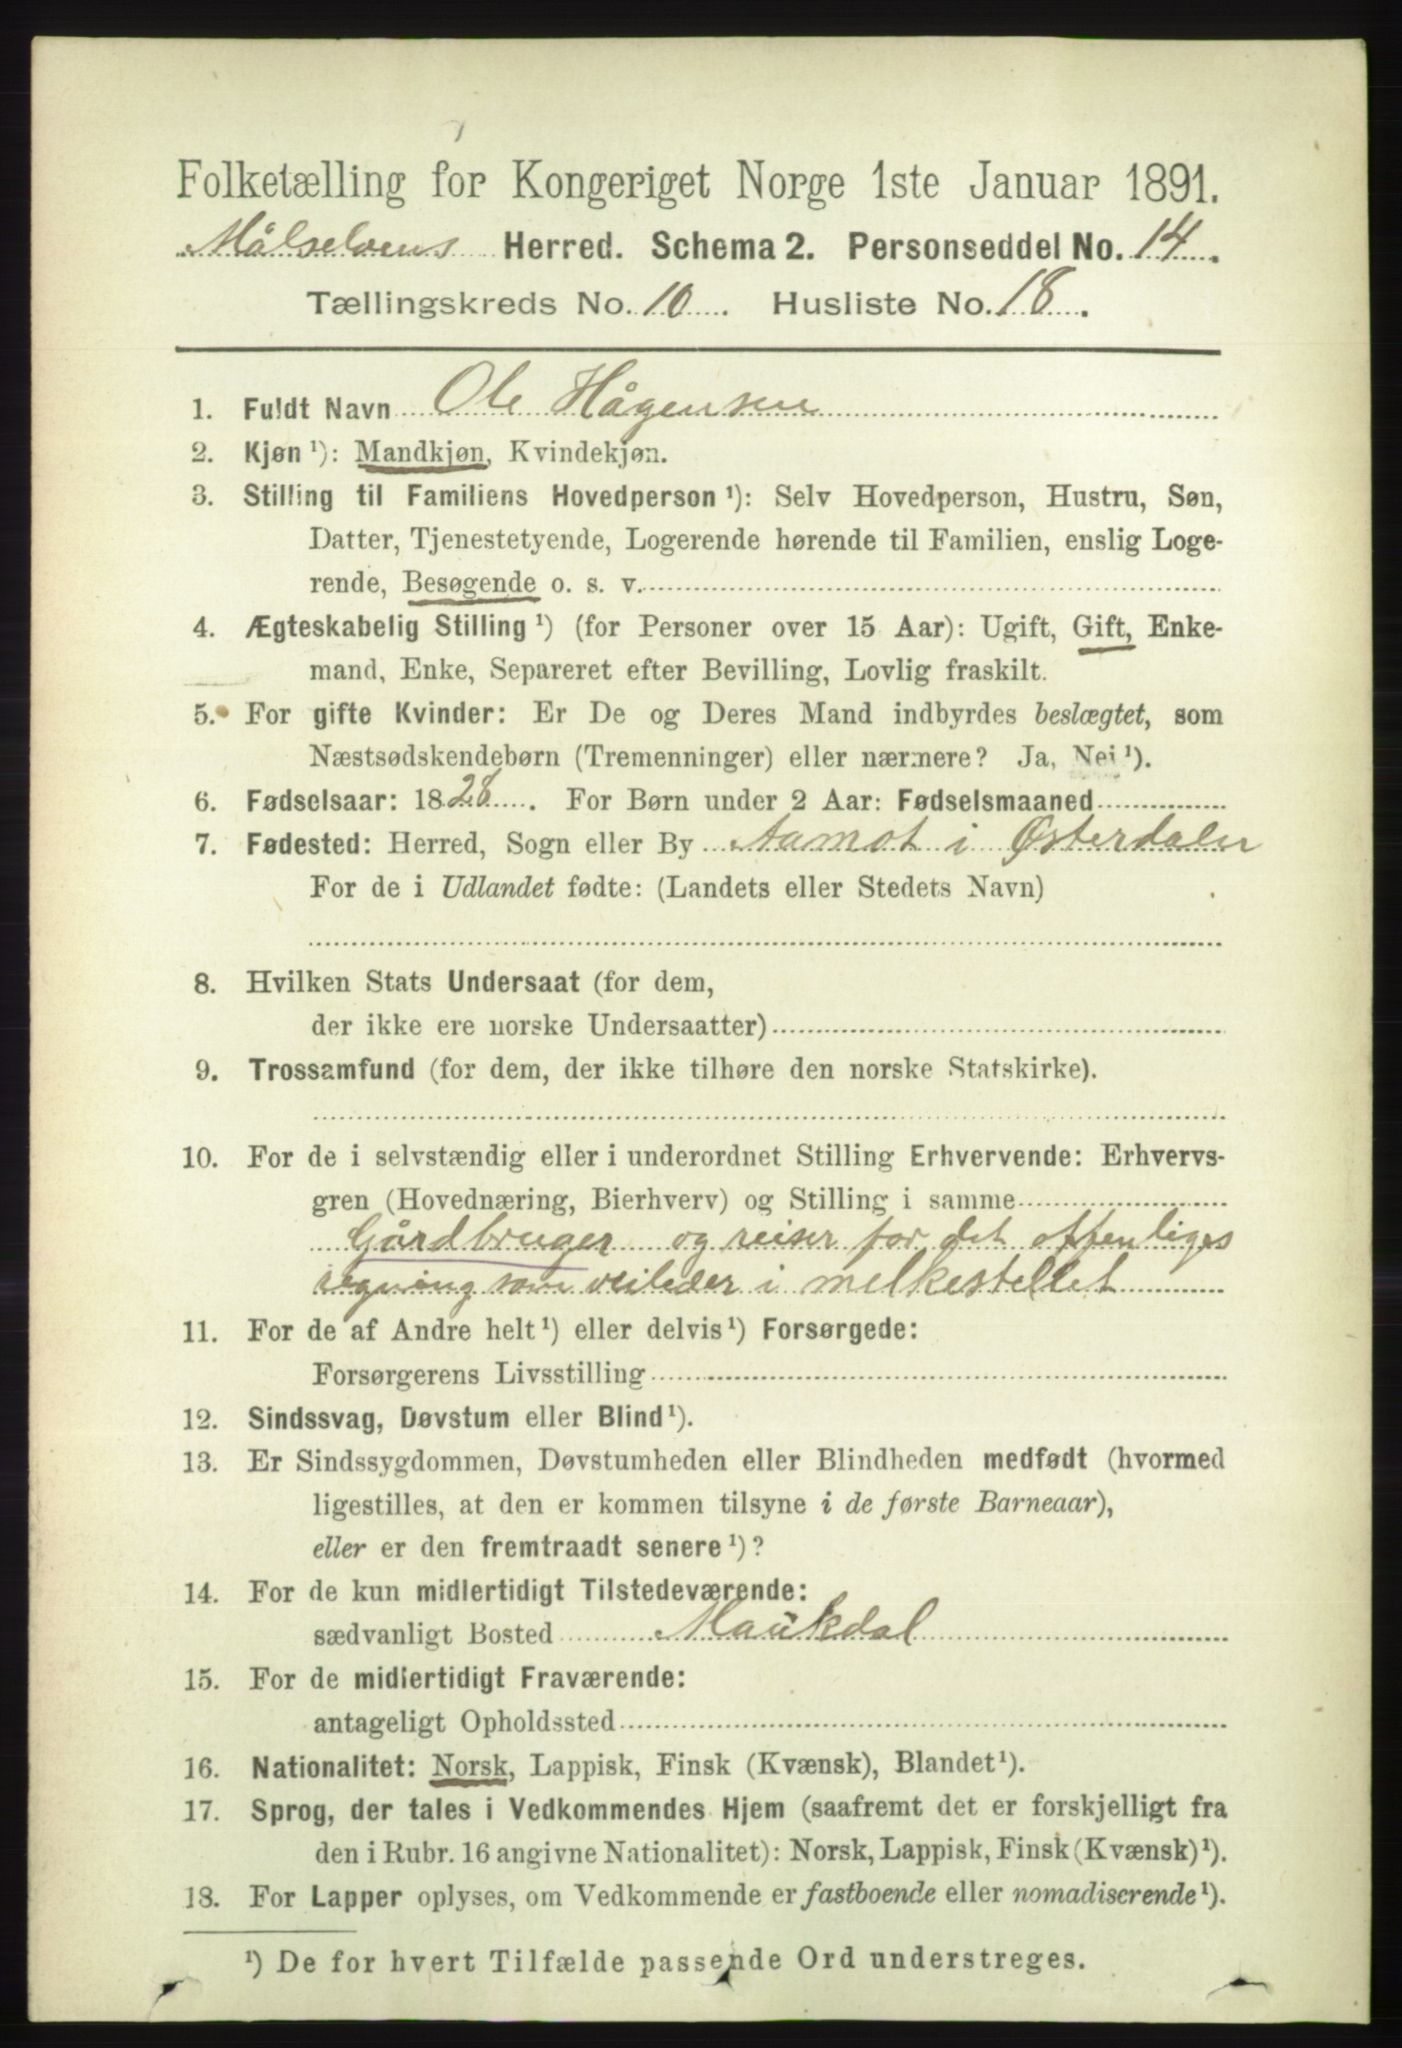 Folketælling for Kongeriget Norge 1ste Januar 1891.
Målselvens Herred. Schema 2. Personseddel No. 14.
Tællingskreds No. 10. Husliste No. 18.
1. Fuldt Navn Ole Hågensen
2. Kjøn ¹): Mandkjøn, Kvindekjøn.
3. Stilling til Familiens Hovedperson ¹): Selv Hovedperson, Hustru, Søn,
Datter, Tjenestetyende, Logerende hørende til Familien, enslig Loge-
rende, Besøgende o. s. v.
4. Ægteskabelig Stilling ¹) (for Personer over 15 Aar): Ugift, Gift, Enke-
mand, Enke, Separeret efter Bevilling, Lovlig fraskilt.
5. For gifte Kvinder: Er De og Deres Mand indbyrdes beslægtet, som
Næstsødskendebørn (Tremenninger) eller nærmere? Ja, Nei ¹).
6. Fødselsaar: 1828. For Børn under 2 Aar: Fødselsmaaned
7. Fødested: Herred, Sogn eller By Aamot i Østerdalen
For de i Udlandet fødte: (Landets eller Stedets Navn)
8. Hvilken Stats Undersaat (for dem,
der ikke ere norske Undersaatter)
9. Trossamfund (for dem, der ikke tilhøre den norske Statskirke).
10. For de i selvstændig eller i underordnet Stilling Erhvervende: Erhvervs-
gren (Hovednæring, Bierhverv) og Stilling i samme
Gårdbruger og reiser for det offenliges
regning som veileder i melkestellet
11. For de af Andre helt ¹) eller delvis ¹) Forsørgede:
Forsørgerens Livsstilling
12. Sindssvag, Døvstum eller Blind ¹).
13. Er Sindssygdommen, Døvstumheden eller Blindheden medfødt (hvormed
ligestilles, at den er kommen tilsyne i de første Barneaar),
eller er den fremtraadt senere ¹)?
14. For de kun midlertidigt Tilstedeværende:
sædvanligt Bosted Maukdal
15. For de midlertidigt Fraværende:
antageligt Opholdssted
16. Nationalitet: Norsk, Lappisk, Finsk (Kvænsk), Blandet ¹).
17. Sprog, der tales i Vedkommendes Hjem (saafremt det er forskjelligt fra
den i Rubr. 16 angivne Nationalitet): Norsk, Lappisk, Finsk (Kvænsk) ¹).
18. For Lapper oplyses, om Vedkommende er fastboende eller nomadiserende ¹).
¹) De for hvert Tilfælde passende Ord understreges.